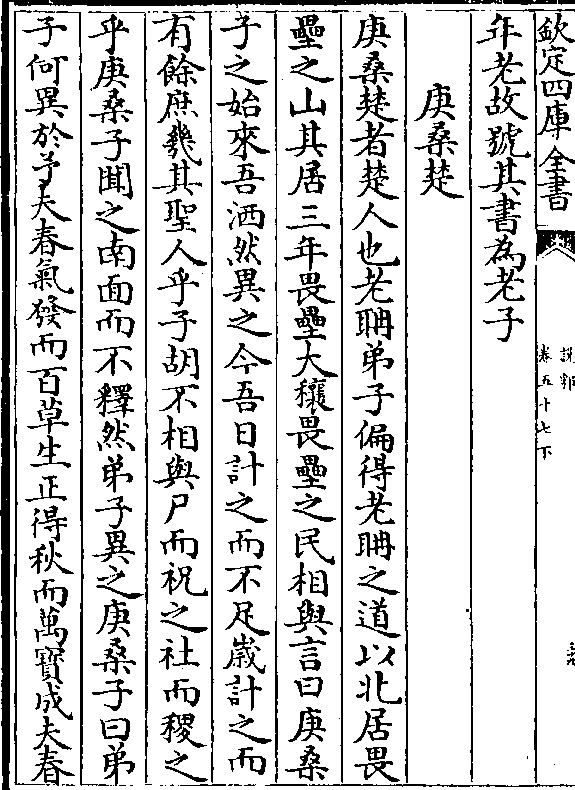 欽定四庫全書
說郛
卷五十七下
年老故號其書為老子
庚桑楚
庚桑楚者楚人也老聃弟子偏得老聃之道以北居畏
壘之山其居三年畏壘大穰畏壘之民相與言曰庚桑
子之始來吾洒然異之今吾日計之而不足嵗計之而
有餘庶㡬其聖人乎子胡不相與尸而祝之社而稷之
乎庚桑子聞之南面而不釋然弟子異之庚桑子曰弟
子何異於予夫春氣發而百草生正得秋而萬寳成夫春